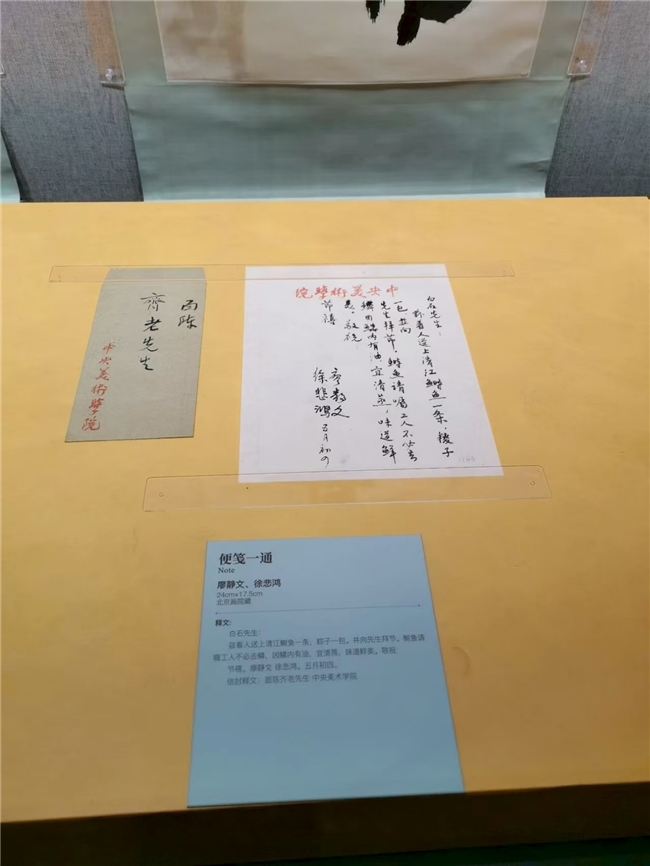 面陈
齐老先生
中央美術學院
中央美術學院
白石先生：
兹着人送上清江鰣魚一条，糭子
一包，並向
先生拜节，鰣魚请嘱工人不必去
鱗，因鱗内有油，宜清蒸，味道鲜
美。敬祝
节禧
廖静文
徐悲鴻 五月初四
便笺一通
Note
廖静文、徐悲鸿
24cm×17.5cm
北京画院藏
释文：
白石先生：
兹着人送上清江鲥鱼一条、粽子一包，并向先生拜节。鲥鱼请
嘱工人不必去鳞，因鳞内有油，宜清蒸，味道鲜美。敬祝
节禧。廖静文 徐悲鸿。五月初四。
信封释文：面陈齐老先生 中央美术学院